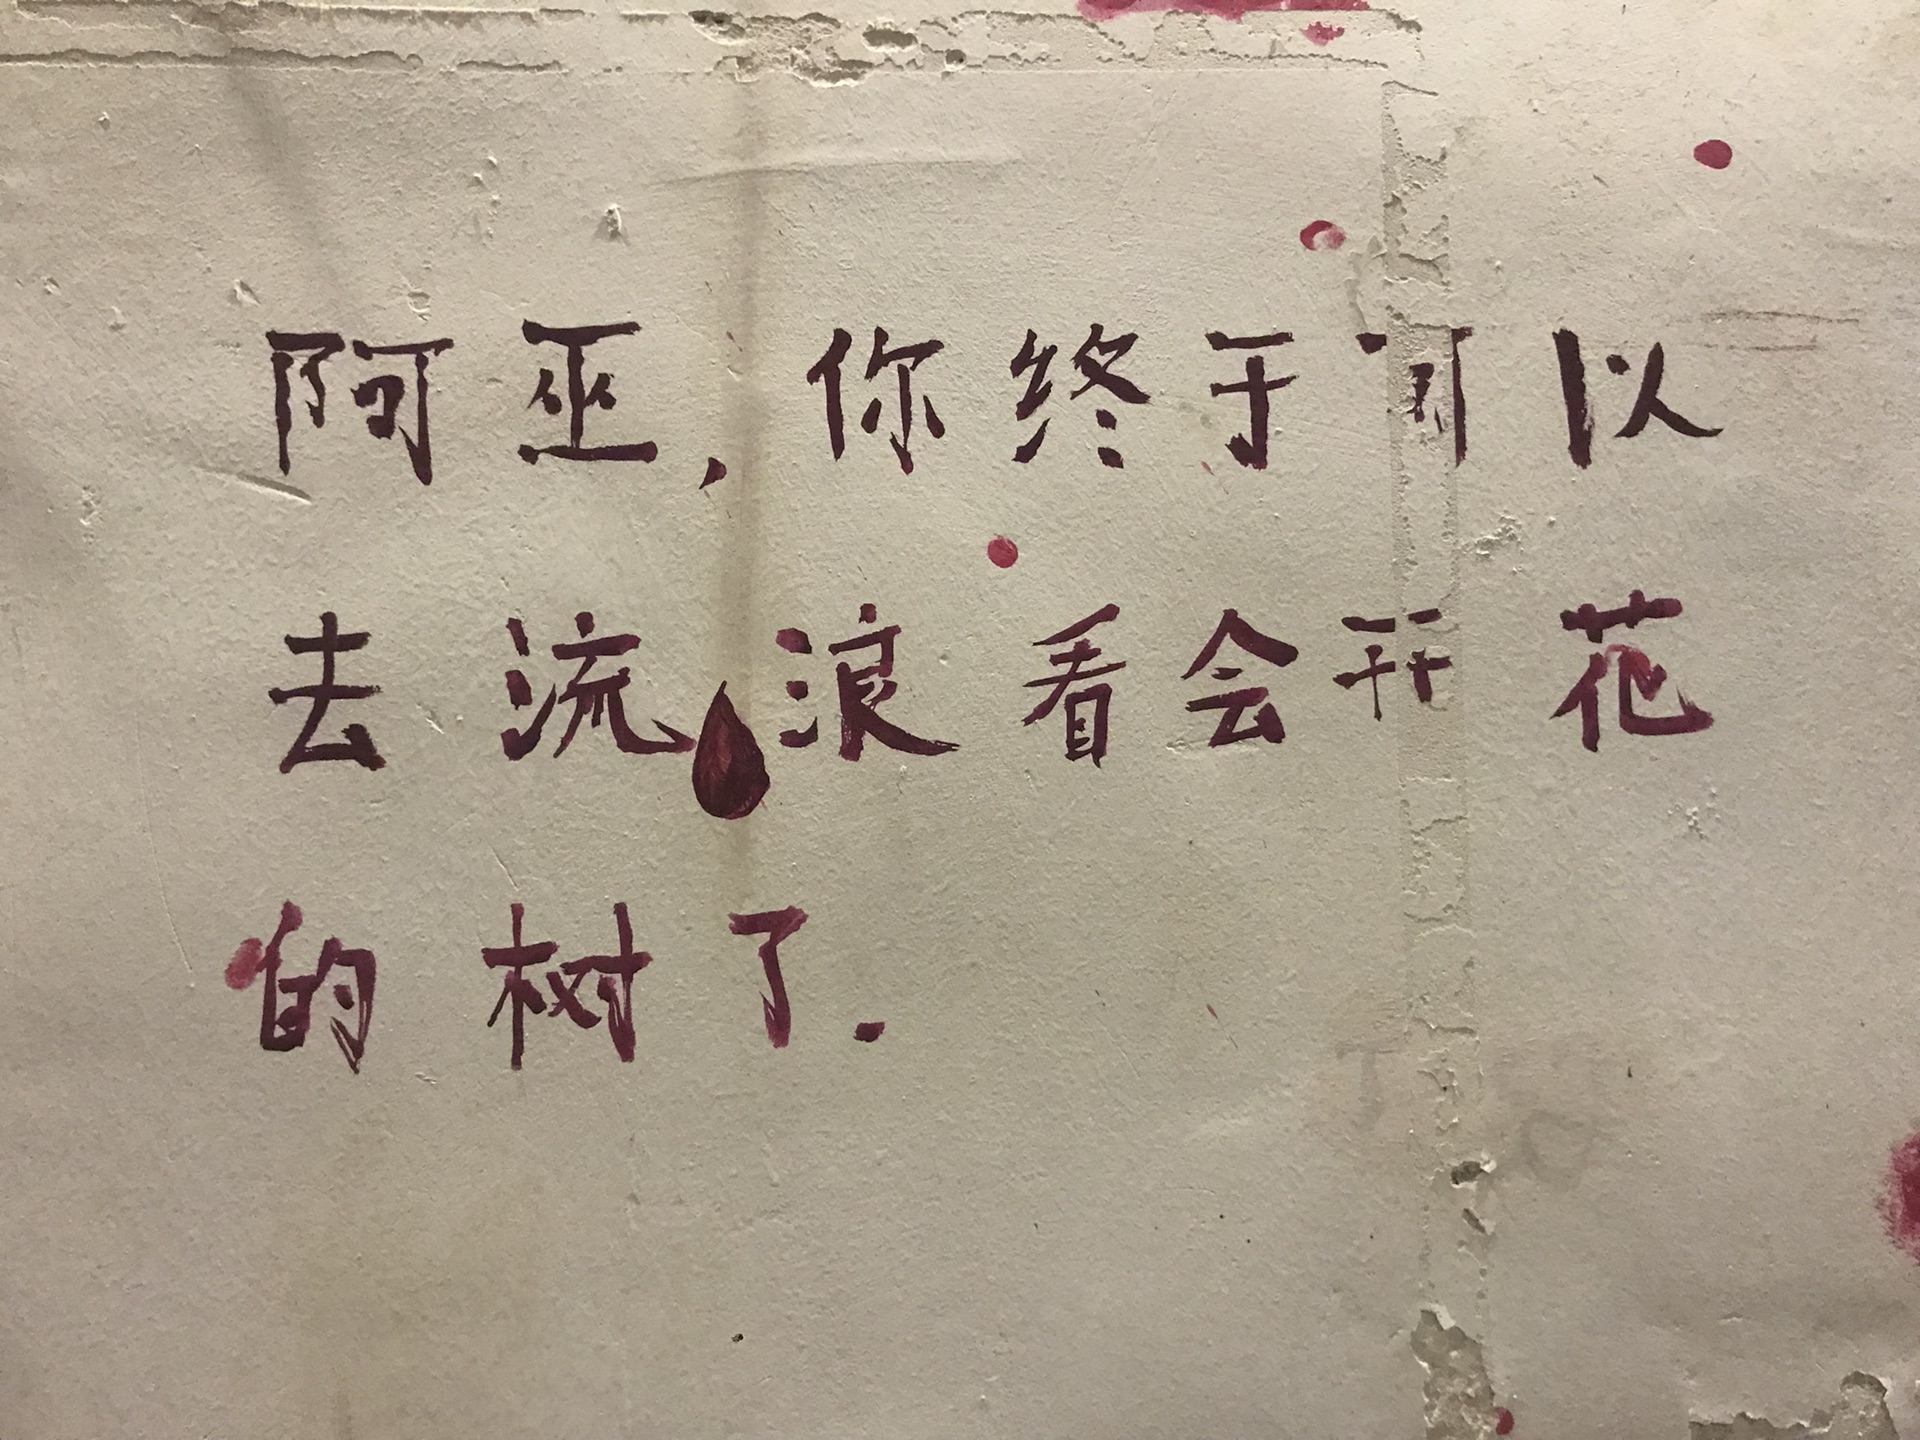 阿巫,你终于可以
去流浪看会开花
的树了.